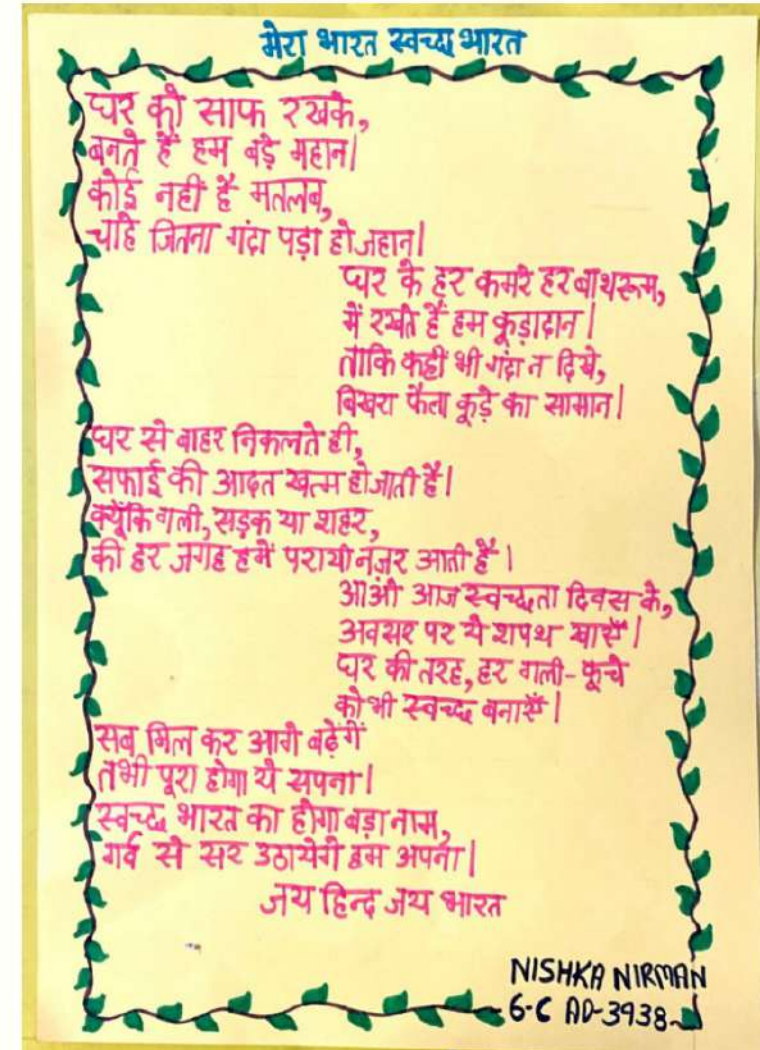 मेरा भारत स्वच्छ भारत
घर को साफ रखके,
बनते हैं हम बड़े महान।
कोई नहीं है मतलब,
चाहे जितना गंदा पड़ा हो जहान।
घर के हर कमरे हर बाथरूम,
में रखते हैं हम कूड़ादान।
ताकि कहीं भी गंदा न दिखे,
बिखरा फैला कूड़े का सामान।
घर से बाहर निकलते ही,
सफाई की आदत खत्म हो जाती है।
क्यूँकि गली, सड़क या शहर,
की हर जगह हमें परायी नज़र आती है।
आओ आज स्वच्छता दिवस के,
अवसर पर ये शपथ खाएँ।
घर की तरह, हर गली-कूचे
को भी स्वच्छ बनाएँ।
सब मिल कर आगे बढ़ेगें
तभी पूरा होगा ये सपना।
स्वच्छ भारत का होगा बड़ा नाम,
गर्व से सर उठायेगें हम अपना।
जय हिन्द जय भारत
NISHKA NIRMAN
6-C AD-3938